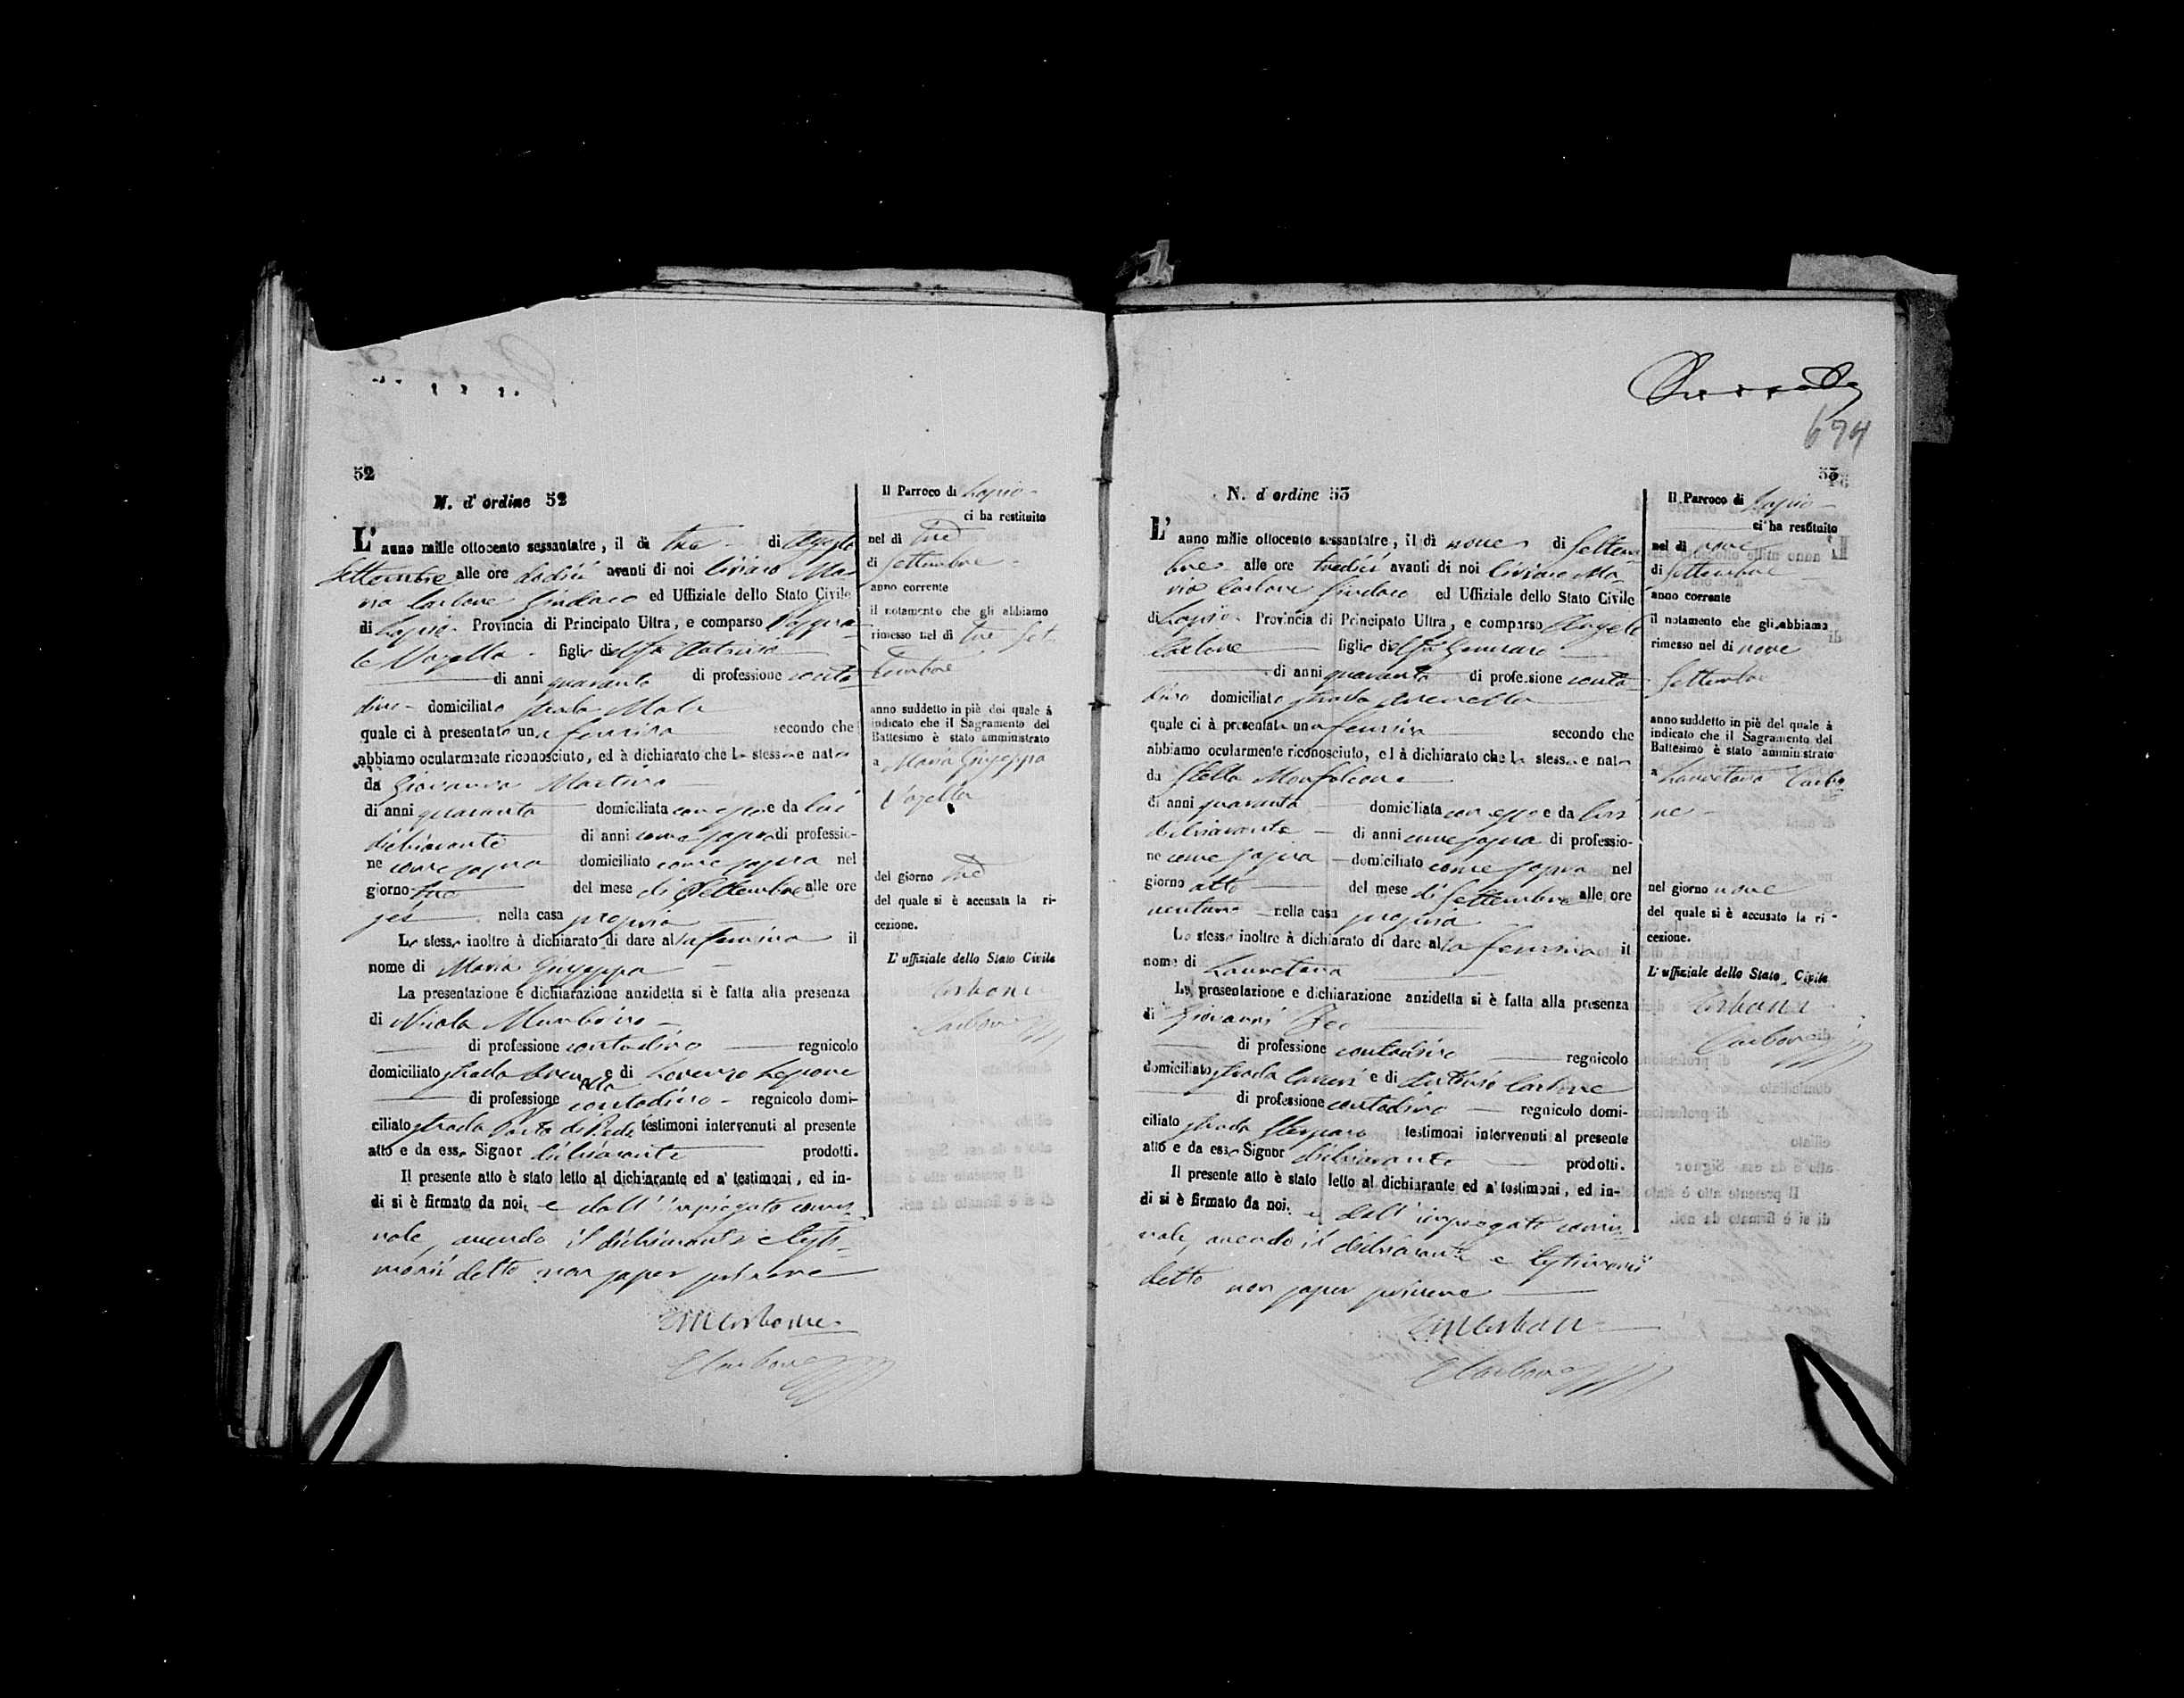 694
52
N. d' ordine 52
L' anno mille ottocento sessantatre, il dì tre di Agosto
Settembre alle ore dodici avanti di noi Ciriaco Ma-
ria Carbone Sindaco ed Uffiziale dello Stato Civile
di Lapio Provincia di Principato Ultra, e comparso
Vozella figlio di
di anni quaranta di professione conta-
dino domiciliato strada Mola
quale ci à presentato una femina secondo che
abbiamo ocularmente riconosciuto, ed à dichiarato che la stessa e nata
da Giovanna Martino
di anni quaranta domiciliata con esso e da lui
dichiarante di anni come sopra di professio-
ne come sopra domiciliato come sopra nel
giorno tre del mese di Settembre alle ore
sei nella casa propria
Lo stesso inoltre à dichiarato di dare alla femina il
nome di Maria Giuseppa
La presentazione e dichiarazione anzidetta si è fatta alla presenza
di Nicola
di professione contadino regnicolo
domiciliato strada e di Lorenzo Lepore
di professione contadino regnicolo domi-
ciliato strada Porta testimoni intervenuti al presente
atto e da esso Signor dichiarante prodotti.
Il presente atto è stato letto al dichiarante ed a' testimoni, ed in-
di si è firmato da noi, e dall'impiegato comu-
nale, avendo il dichiarante e testi-
monii detto non saper scrivere
CMCarbone
Carbone
Il Parroco di Lapio
ci ha restituito
nel dì tre
di Settembre
anno corrente
il notamento che gli abbiamo
rimesso nel dì tre Set-
tembre
anno suddetto in piè del quale à
indicato che il Sagramento del
Battesimo è stato amministrato
a Maria Giuseppa
Vozella
del giorno tre
del quale si è accusata la ri-
cezione.
L' uffiziale dello Stato Civile
Carbone
Carbone
53
N. d' ordine 53
L' anno mille ottocento sessantatre, il dì nove di Settem-
bre alle ore tredici avanti di noi Ciriaco Ma-
ria Carbone Sindaco ed Uffiziale dello Stato Civile
di Lapio Provincia di Principato Ultra, e comparso Angelo
Carbone figlio di Gennaro
di anni quaranta di professione conta-
dino domiciliato strada Arenella
quale ci à presentata una femina secondo che
abbiamo ocularmente riconosciuto, ed à dichiarato che la stessa e nata
da Stella Monfalcone
di anni quaranta domiciliata con esso e da lui
dichiarante di anni come sopra di professio-
ne come sopra domiciliato come sopra nel
giorno otto del mese di Settembre alle ore
ventuno nella casa propria
Lo stesso inoltre à dichiarato di dare alla femina il
nome di Lauretana
La presentazione e dichiarazione anzidetta si è fatta alla presenza
di Giovanni Feo
di professione contadino regnicolo
domiciliato strada e di Antonio Carbone
di professione contadino regnicolo domi-
ciliato strada testimoni intervenuti al presente
atto e da esso Signor dichiarante prodotti.
Il presente atto è stato letto al dichiarante ed a' testimoni, ed in-
di si è firmato da noi, e dall'impiegato comu-
nale, avendo il dichiarante e testimonii
detto non saper scrivere
CMCarbone
Carbone
Il Parroco di Lapio
ci ha restituito
nel dì nove
di Settembre
anno corrente
il notamento che gli abbiamo
rimesso nel dì nove
Settembre
anno suddetto in piè del quale à
indicato che il Sagramento del
Battesimo è stato amministrato
a Lauretana Carbo-
ne
nel giorno nove
del quale si è accusato la ri-
cezione.
L' uffiziale dello Stato Civile
Carbone
Carbone